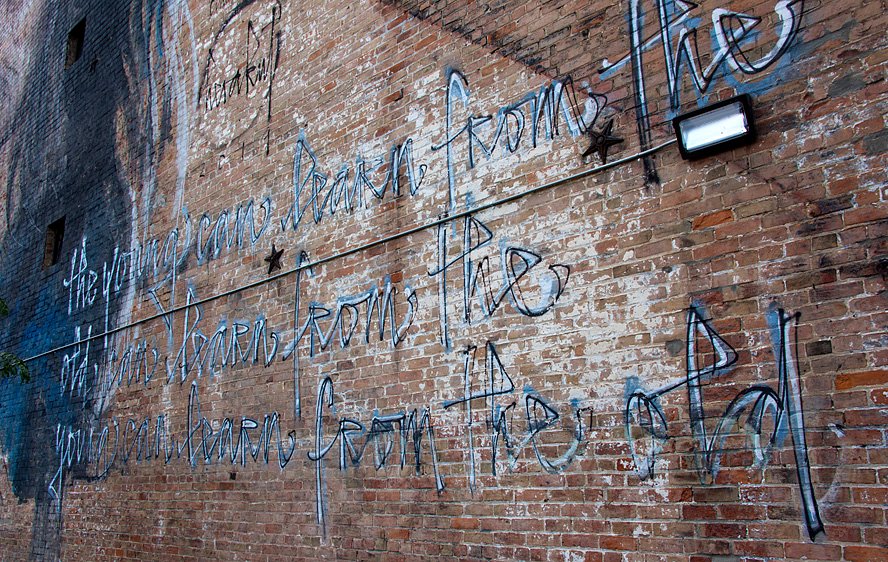 the young can learn from the
old, can learn from the
young can learn from the old